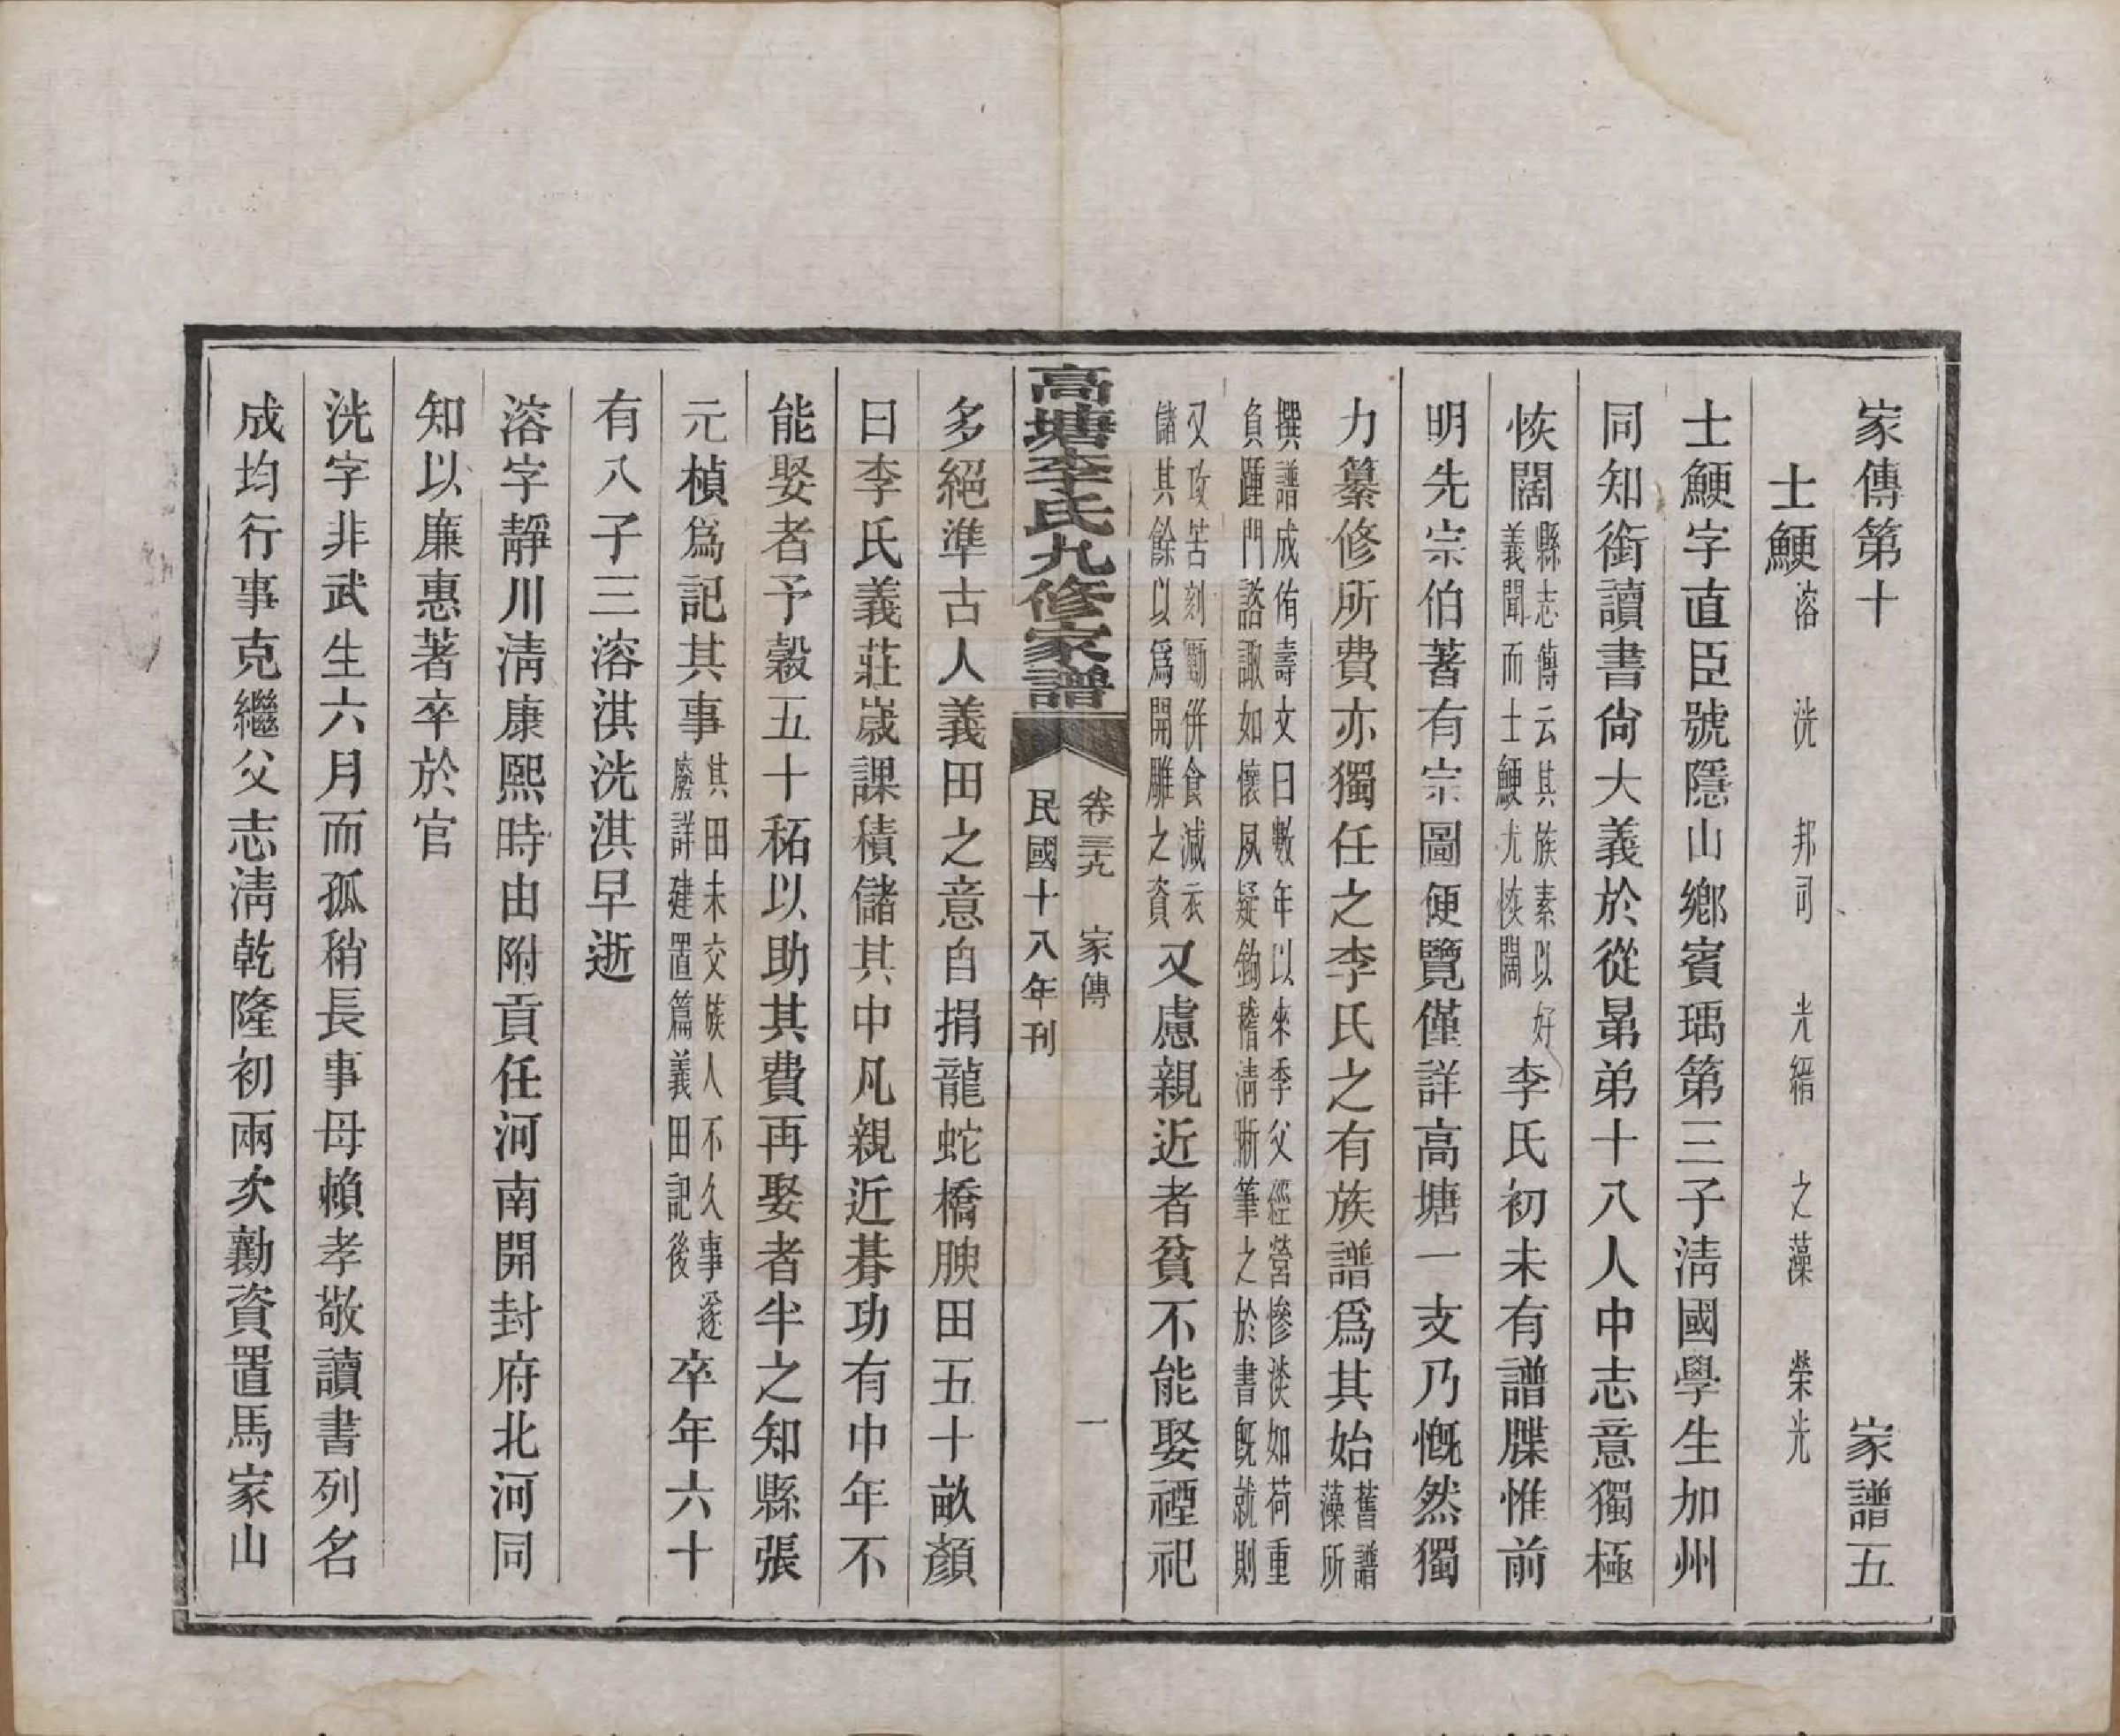 家傳第十　家譜五
士鯁 溶 洸 邦司 光縉 之藻 榮光
士鯁字直臣號隱山鄉賓瑀第三子淸國學生加州
同知銜讀書尙大義於從晜弟十八人中志意獨極
恢闊縣志傳云其族素以好義聞而士鯁尤恢闊李氏初未有譜牒惟前
明先宗伯著有宗圖便覽僅詳高塘一支乃慨然獨
力纂修所費亦獨任之李氏之有族譜爲其始舊譜藻所
撰譜成侑壽文曰數年以來季父經營慘淡如荷重負踵門諮諏如懷夙疑鉤稽淸晰筆之於書旣就則
又攻苦刻勵併食減衣儲其餘以爲開雕之資又慮親近者貧不能娶禋祀
高塘李氏九修家譜　卷三九　家傳　一　民國十八年刊
多絕準古人義田之意自捐龍蛇橋腴田五十畝顏
曰李氏義莊歲課積儲其中凡親近朞功有中年不
能娶者予穀五十秳以助其費再娶者半之知縣張
元楨爲記其事其田未交族人不久事遂廢詳建置篇義田記後卒年六十
有八子三溶淇洸淇早逝
溶字靜川淸康熙時由附貢任河南開封府北河同
知以廉惠著卒於官
洸字非武生六月而孤稍長事母賴孝敬讀書列名
成均行事克繼父志淸乾隆初兩次勷資置馬家山